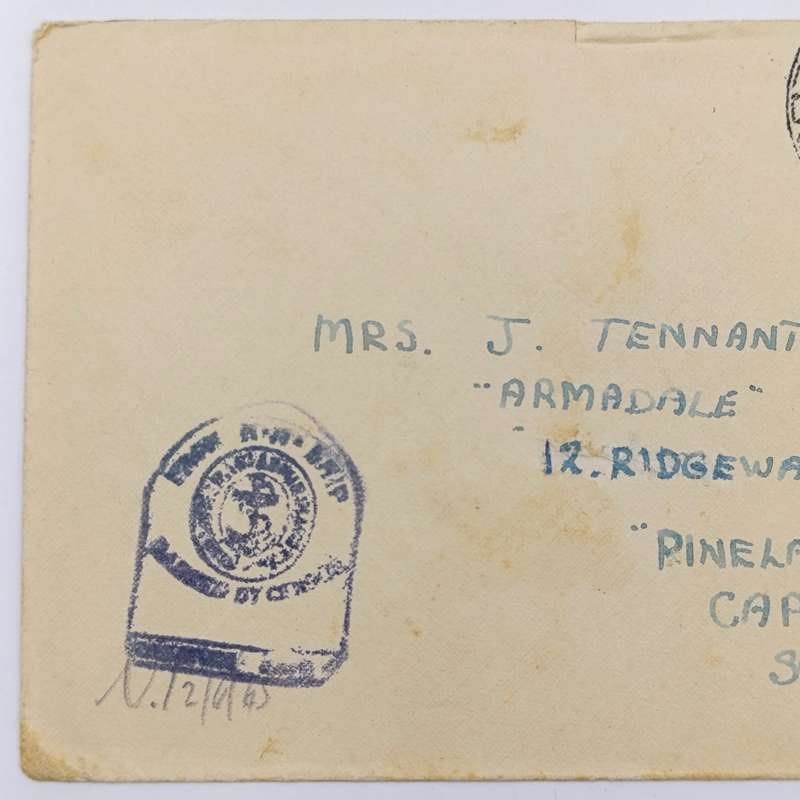 MRS. J. TENNANT
"ARMADALE"
12. RIDGEWA
"PINELA
CAP
S
FROM H.M. SHIP
PASSED BY CENSOR